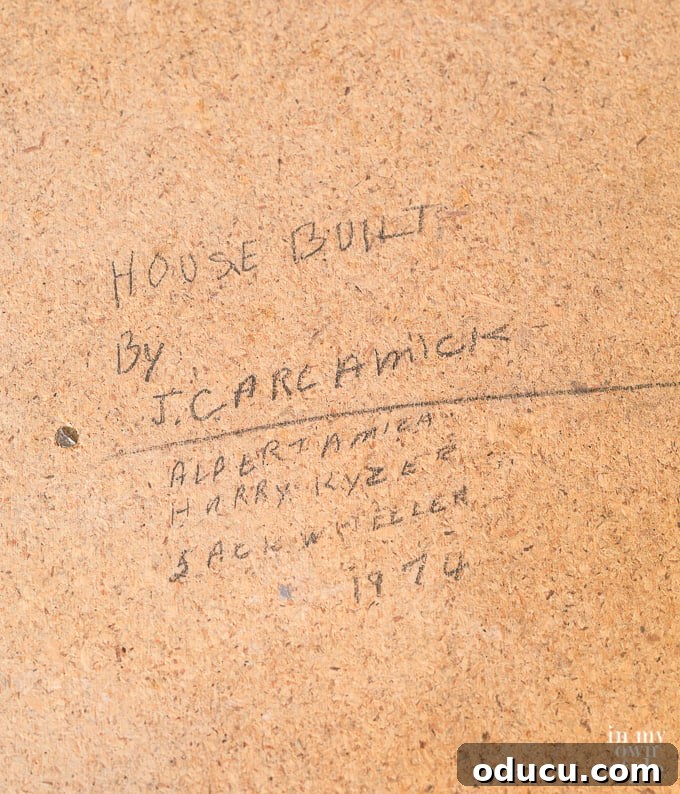 HOUSE BUILT
By
J. CARL AMICK
ALBERT AMICK
HARRY KYZER
JACK WHEELER
1974
in my
own
oducu.com